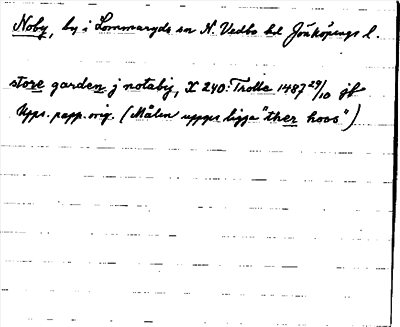 Noby, by i Lommaryds sn N. Vedbo hd Jönköpings l.
store garden j notabij, X 240: Trolle 1487 29/10 jb
Upps. papp. orig. (Målen uppges ligga "ther hoos")